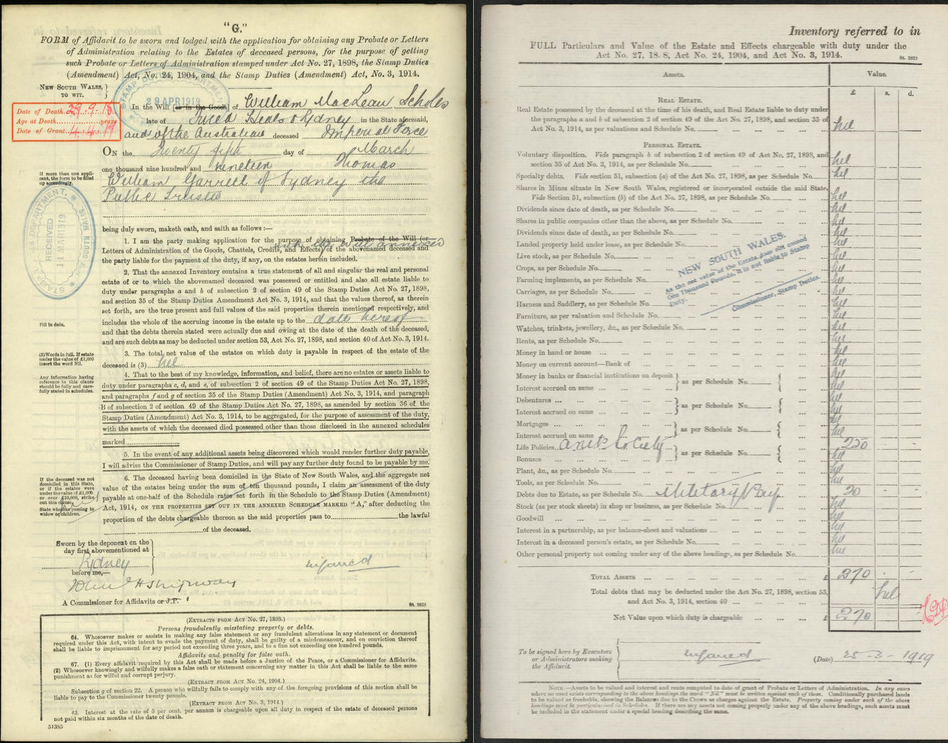 "G."
FORM of Affidavit to be sworn and lodged with the application for obtaining any Probate or Letters
of Administration relating to the Estates of deceased persons, for the purpose of getting
such Probate or Letters of Administration stamped under Act No. 27, 1898, the Stamp Duties
(Amendment) Act, No. 24, 1904, and the Stamp Duties (Amendment) Act, No. 3, 1914.
NEW SOUTH WALES,
TO WIT.
29 APR 1919
Date of Death 29.9.18
Age at Death years
Date of Grant 4.4.19
In the Will of William MacLean Scholes
late of Sydney in the State aforesaid,
and of the Australian deceased Imperial Force
ON the Twenty fifth day of March
one thousand nine hundred and nineteen Thomas
William Garrett of Sydney the
Public Trustee
If more than one appli-
cant, the form to be filled
up accordingly.
RECEIVED
11 MAR 1919
being duly sworn, maketh oath, and saith as follows:—
1. I am the party making application for the purpose of obtaining Probate of the Will (or
Letters of Administration of the Goods, Chattels, Credits, and Effects) of the abovenamed deceased and
the party liable for the payment of the duty, if any, on the estates herein included.
2. That the annexed Inventory contains a true statement of all and singular the real and personal
estate of or to which the abovenamed deceased was possessed or entitled and also all estate liable to
duty under paragraphs a & b of subsection 2 of section 49 of the Stamp Duties Act, No. 27, 1898,
and section 35 of the Stamp Duties Amendment Act No. 3, 1914, and that the values thereof, as therein
set forth, are the true present and full values of the said properties therein mentioned respectively, and
Fill in date.
includes the whole of the accruing income in the estate up to the date hereof
and that the debts therein stated were actually due and owing at the date of the death of the deceased,
and are such debts as may be deducted under section 53, Act No. 27, 1898, and section 40 of Act No. 3, 1914.
(3) Words in full. If estate
under the value of £1,000
insert the word NIL.
3. The total net value of the estates on which duty is payable in respect of the estate of the
deceased is (3) nil
Any information having
reference to this clause
should be fully and care-
fully stated in schedules.
4. That to the best of my knowledge, information, and belief, there are no estates or assets liable to
duty under paragraphs c, d, and e, of subsection 2 of section 49 of the Stamp Duties Act, No. 27, 1898,
and paragraphs f and g of section 35 of the Stamp Duties Act, No. 3, 1914, and paragraph
B of subsection 2 of section 49 of the Stamp Duties Act No. 27, 1898, as amended by section 36 of the
Stamp Duties (Amendment) Act No. 3, 1914, to be aggregated, for the purpose of assessment of the duty,
with the assets of which the deceased died possessed other than those disclosed in the annexed schedules
marked
5. In the event of any additional assets being discovered which would render further duty payable,
I will advise the Commissioner of Stamp Duties, and will pay any further duty found to be payable by me.
If the deceased was not
domiciled in this State,
6. The deceased having been domiciled in the State of New South Wales, and the aggregate net
value of the estates being under the sum of ten thousand pounds, I claim an assessment of the duty
payable at one-half of the Schedule rates set forth in the Schedule to the Stamp Duties (Amendment)
Act, 1914, ON THE PROPERTIES SET OUT IN THE ANNEXED SCHEDULE MARKED "A," after deducting the
proportion of the debts chargeable thereon as the said properties pass to the lawful
of the deceased.
Sworn by the deponent on the
day first abovementioned at
Sydney
before me,—
A Commissioner for Affidavits or J.P.
(EXTRACTS FROM ACT No. 27, 1898.)
Persons fraudulently misstating property or debts.
64. Whosoever makes or assists in making any false statement or any fraudulent alterations in any statement or document
required under this Act, with intent to evade the payment of duty, shall be guilty of a misdemeanor, and on conviction thereof
shall be liable to imprisonment for any period not exceeding three years, and to a fine not exceeding one hundred pounds.
Affidavits and penalty for false oath.
67. (1) Every affidavit required by this Act shall be made before a Justice of the Peace, or a Commissioner for Affidavits.
(2) Whosoever knowingly makes a false oath or statement concerning any matter in this Act shall be liable to the same
punishment as for wilful and corrupt perjury.
(EXTRACT FROM ACT No. 24, 1904.)
Subsection 9 of section 22. A person who wilfully fails to comply with any of the foregoing provisions of this section shall be
liable to pay to the Commissioner twenty pounds.
(EXTRACT FROM ACT No. 3, 1914.)
42. Interest at the rate of 5 per cent. per annum is chargeable upon all duty in respect of the estate of deceased persons
not paid within six months of the date of death.
51385
Inventory referred to in
FULL Particulars and Value of the Estate and Effects chargeable with duty under the
Act No. 27, 18 8, Act No. 24, 1904, and Act No. 3, 1914.
Assets. Value.
£ s. d.
REAL ESTATE.
Real Estate possessed by the deceased at the time of his death, and Real Estate liable to duty under
the paragraphs a and b of subsection 2 of section 49 of Act No. 27, 1898, and section 35 of
Act No. 3, 1914, as per valuations and Schedule No. nil
PERSONAL ESTATE.
Voluntary disposition. Vide paragraph b of subsection 2 of section 49 of Act No. 27, 1898, and
section 35 of Act No. 3, 1914, as per Schedule No. nil
Specialty debts. Vide section 51, subsection (a) of the Act No. 27, 1898, as per Schedule No. nil
Shares in Mines situate in New South Wales, registered or incorporated outside the said State.
Vide Section 51, subsection (b) of the Act No. 27, 1898, as per Schedule No. nil
Dividends since date of death, as per Schedule No. nil
Shares in public companies other than the above, as per Schedule No. nil
Dividends since date of death, as per Schedule No. nil
Landed property held under lease, as per Schedule No. nil
Live stock, as per Schedule No. nil
Crops, as per Schedule No. nil
Farming implements, as per Schedule No. nil
Carriages, as per Schedule No. nil
Harness and Saddlery, as per Schedule No. nil
Furniture, as per valuation and Schedule No. nil
NEW SOUTH WALES.
As the net value of the Estate does not exceed
One Thousand Pounds, it is not liable to Stamp
Duty.
Commissioner, Stamp Duties
Watches, trinkets, jewellery, &c., as per Schedule No. nil
Rents, as per Schedule No. nil
Money in hand or house nil
Money on current account—Bank of nil
Money in banks or financial institutions on deposit
Interest accrued on same as per Schedule No. nil
Debentures
Interest accrued on same as per Schedule No. nil
Mortgages
Interest accrued on same as per Schedule No. nil
Life Policies A.M.P. Society 250
Bonuses as per Schedule No. nil
Plant, &c., as per Schedule No. nil
Tools, as per Schedule No. nil
Debts due to Estate, as per Schedule No. Military Pay 20
Stock (as per stock sheets) in shop or business, as per Schedule No. nil
Goodwill nil
Interest in a partnership, as per balance-sheet and valuations nil
Interest in a deceased person's estate, as per Schedule No. nil
Other personal property not coming under any of the above headings, as per Schedule No. nil
TOTAL ASSETS £ 270
Total debts that may be deducted under the Act No. 27, 1898, section 53,
and Act No. 3, 1914, section 40 nil
Net Value upon which duty is chargeable £ 270
To be signed here by Executors
or Administrators making
the Affidavit.
(Date) 25-3-1919
NOTE.—Assets to be valued and interest and rents computed to date of grant of Probate or Letters of Administration.